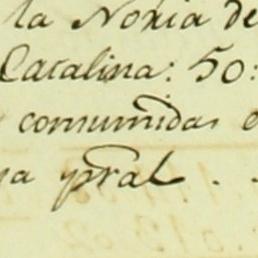 la Noria de
Catalina: 50:
comumidas
pral